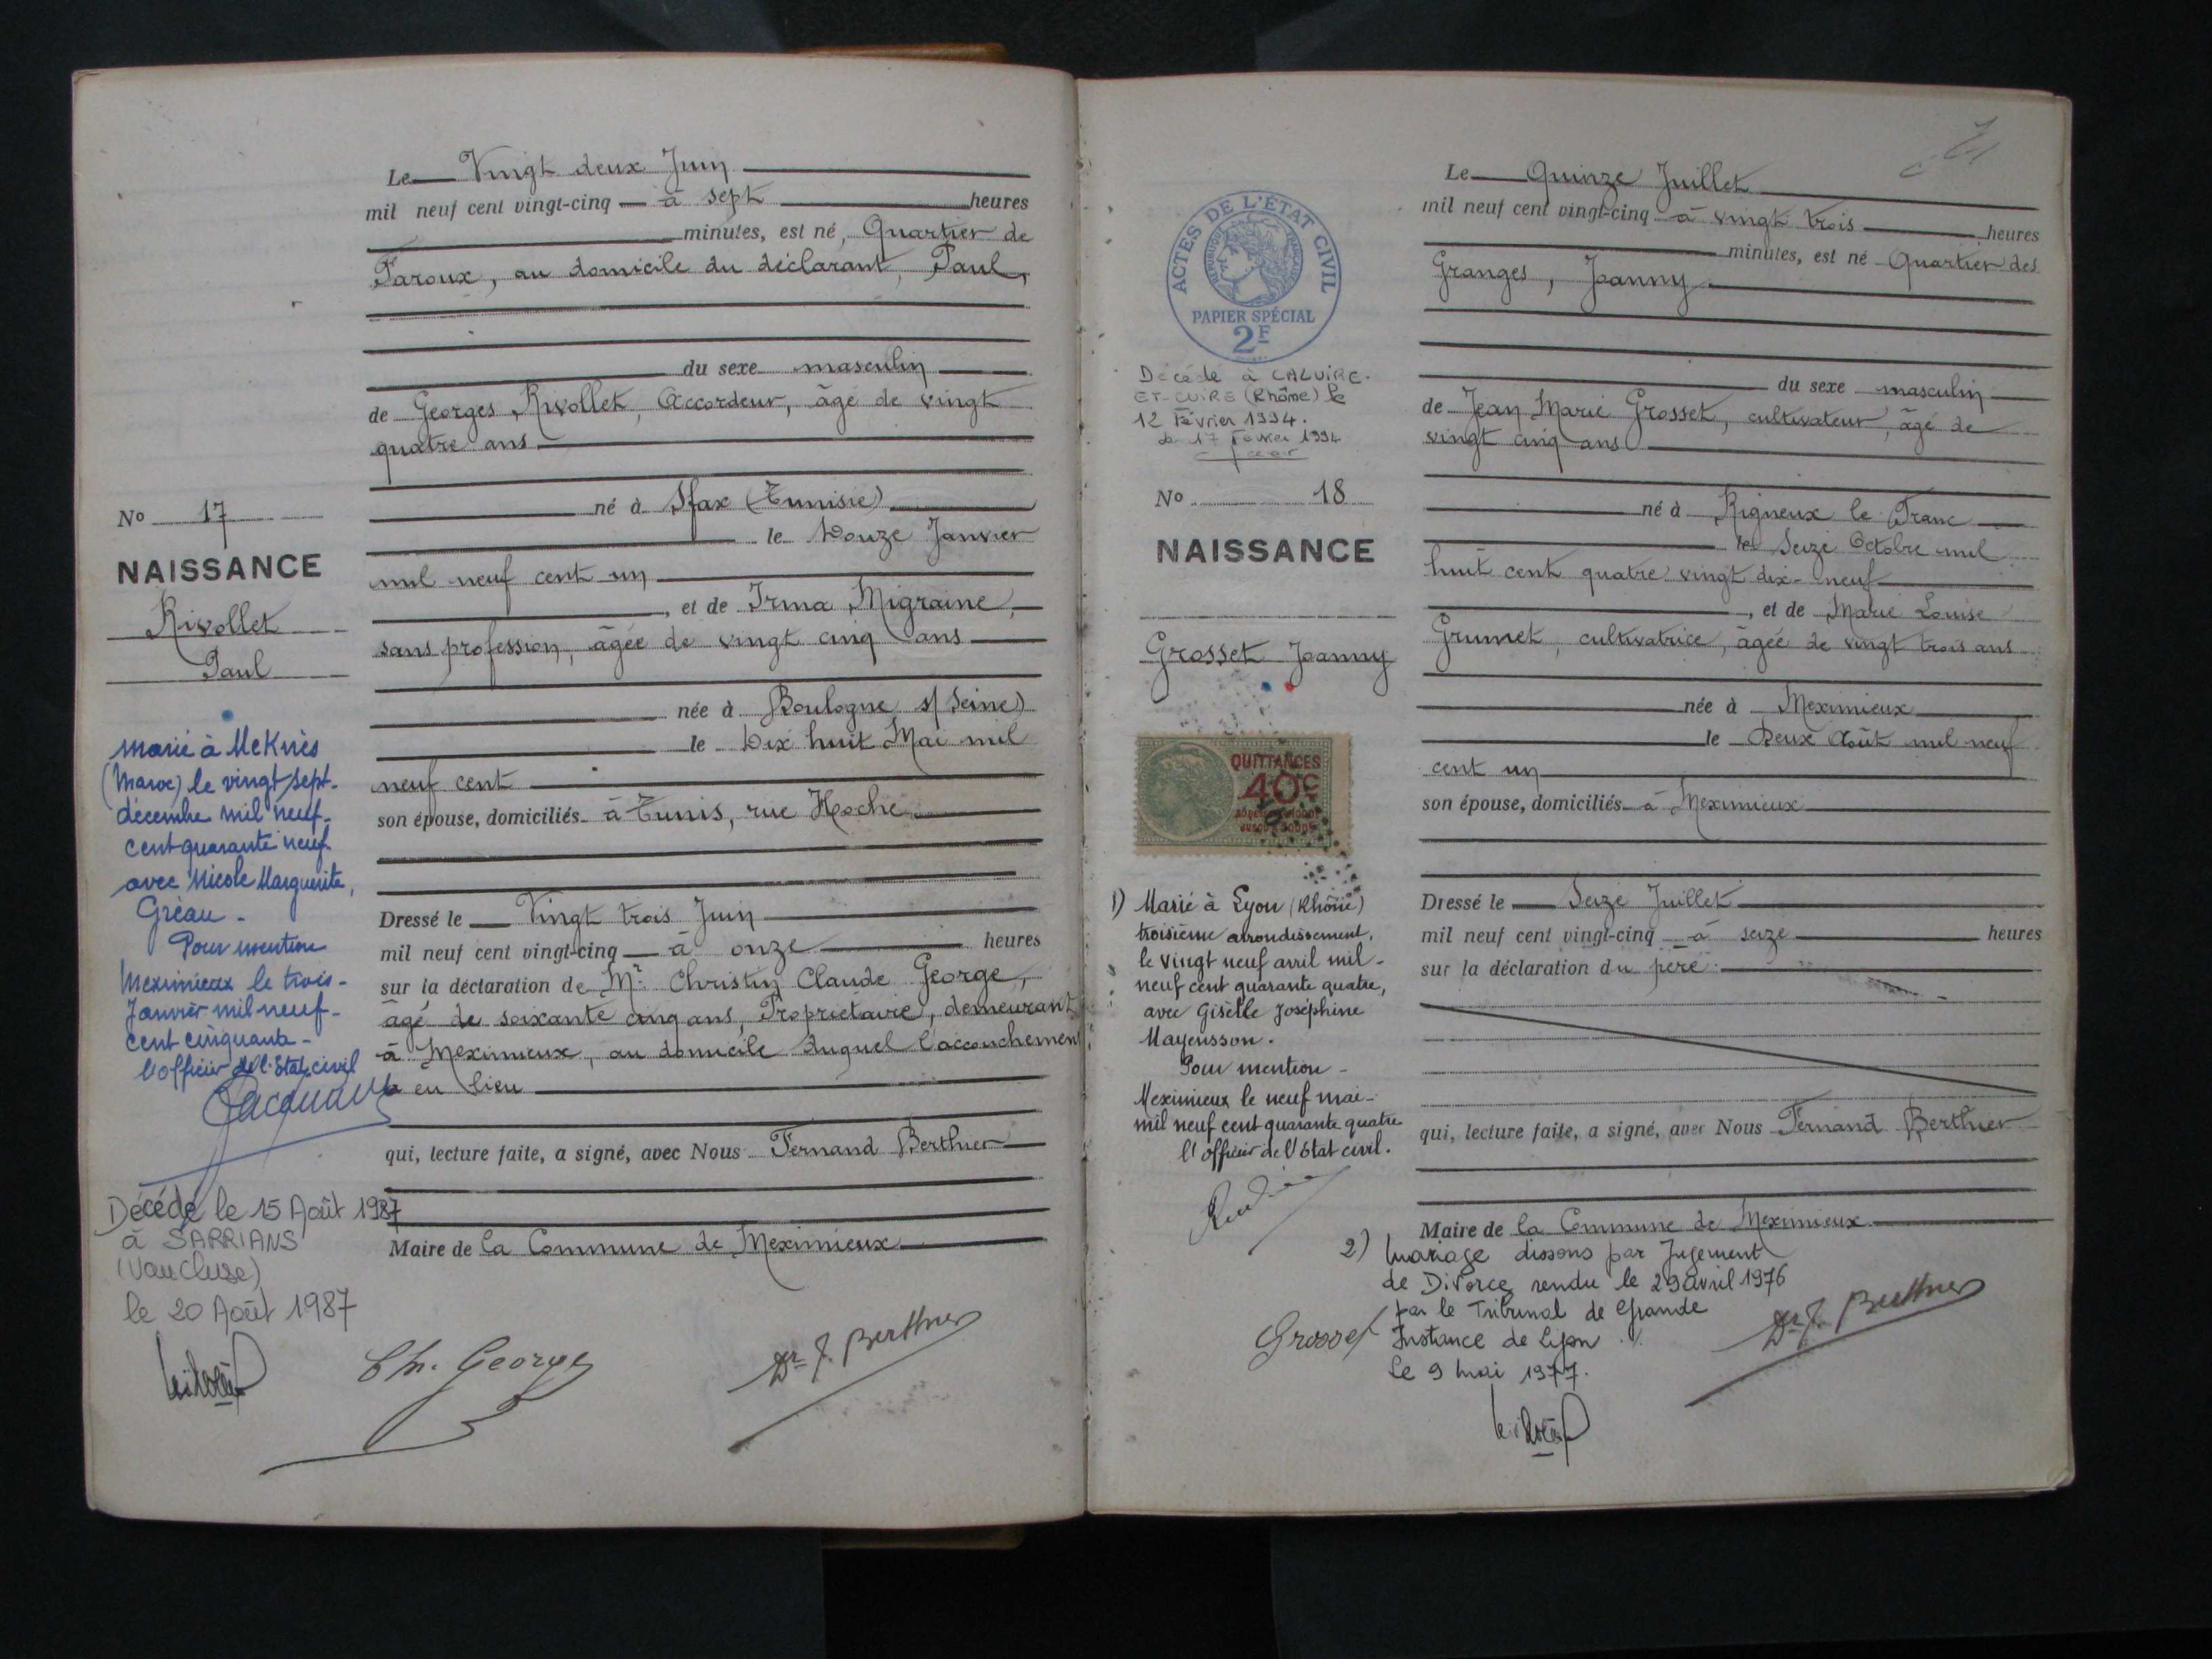 Le Vingt deux Juin
mil neuf cent vingt-cinq à sept heures
minutes, est né, Quartier de
Faroux, au domicile du déclarant, Paul,
du sexe masculin
de Georges Rivollet, Accordeur, âgé de vingt
quatre ans
né à Sfax (Tunisie)
le Douze Janvier
mil neuf cent un
, et de Irma Migraine,
sans profession, âgée de vingt cinq ans
née à Boulogne s/ Seine)
le Dix huit Mai mil
neuf cent
son épouse, domiciliés à Tunis, rue Hoche
Dressé le Vingt trois Juin
mil neuf cent vingt-cinq à onze heures
sur la déclaration de Mr Christin Claude George,
âgé de soixante cinq ans, Propriétaire, demeurant
à Meximieux, au domicile duquel l'accouchement
a eu lieu
qui, lecture faite, a signé, avec Nous Fernand Berthier
Maire de la Commune de Meximieux
No 17
NAISSANCE
Rivollet
Paul
marié à Meknès
(Maroc) le vingt sept
décembre mil neuf
cent quarante neuf
avec Nicole Marguerite,
Gréau -
Pour mention
Meximieux le trois
Janvier mil neuf
cent cinquante -
l'officier de l'Etat civil
Décédé le 15 Août 1987
à SARRIANS
(Vaucluse)
le 20 Août 1987
Ch. George
Dr F. Berthier
Le Quinze Juillet
mil neuf cent vingt-cinq à vingt trois heures
minutes, est né Quartier des
Granges, Joanny
du sexe masculin
de Jean Marie Grosset, cultivateur, âgé de
vingt cinq ans
né à Rigneux le Franc
le Seize Octobre mil
huit cent quatre vingt dix-neuf
, et de Marie Louise
Grumet, cultivatrice, âgée de vingt trois ans
née à Meximieux
le Deux Août mil neuf
cent un
son épouse, domiciliés à Meximieux
Dressé le Seize Juillet
mil neuf cent vingt-cinq à seize heures
sur la déclaration du père
qui, lecture faite, a signé, avec Nous Fernand Berthier
Maire de la Commune de Meximieux
ACTES DE L'ÉTAT CIVIL
RÉPUBLIQUE FRANÇAISE
PAPIER SPÉCIAL
2F
Décédé à CALUIRE-
ET-CUIRE (Rhône) le
12 Février 1994.
le 17 Février 1994
No 18
NAISSANCE
Grosset Joanny
QUITTANCES
40c
1) Marié à Lyon (Rhône)
troisième arrondissement,
le vingt neuf avril mil
neuf cent quarante quatre,
avec Gisèle Joséphine
Mayensson.
Pour mention -
Meximieux le neuf mai
mil neuf cent quarante quatre
l'officier de l'Etat civil.
2) Mariage dissous par Jugement
de Divorce rendu le 29 avril 1976
par le Tribunal de Grande
Instance de Lyon
Le 9 mai 1977.
Grosset
Dr F. Berthier